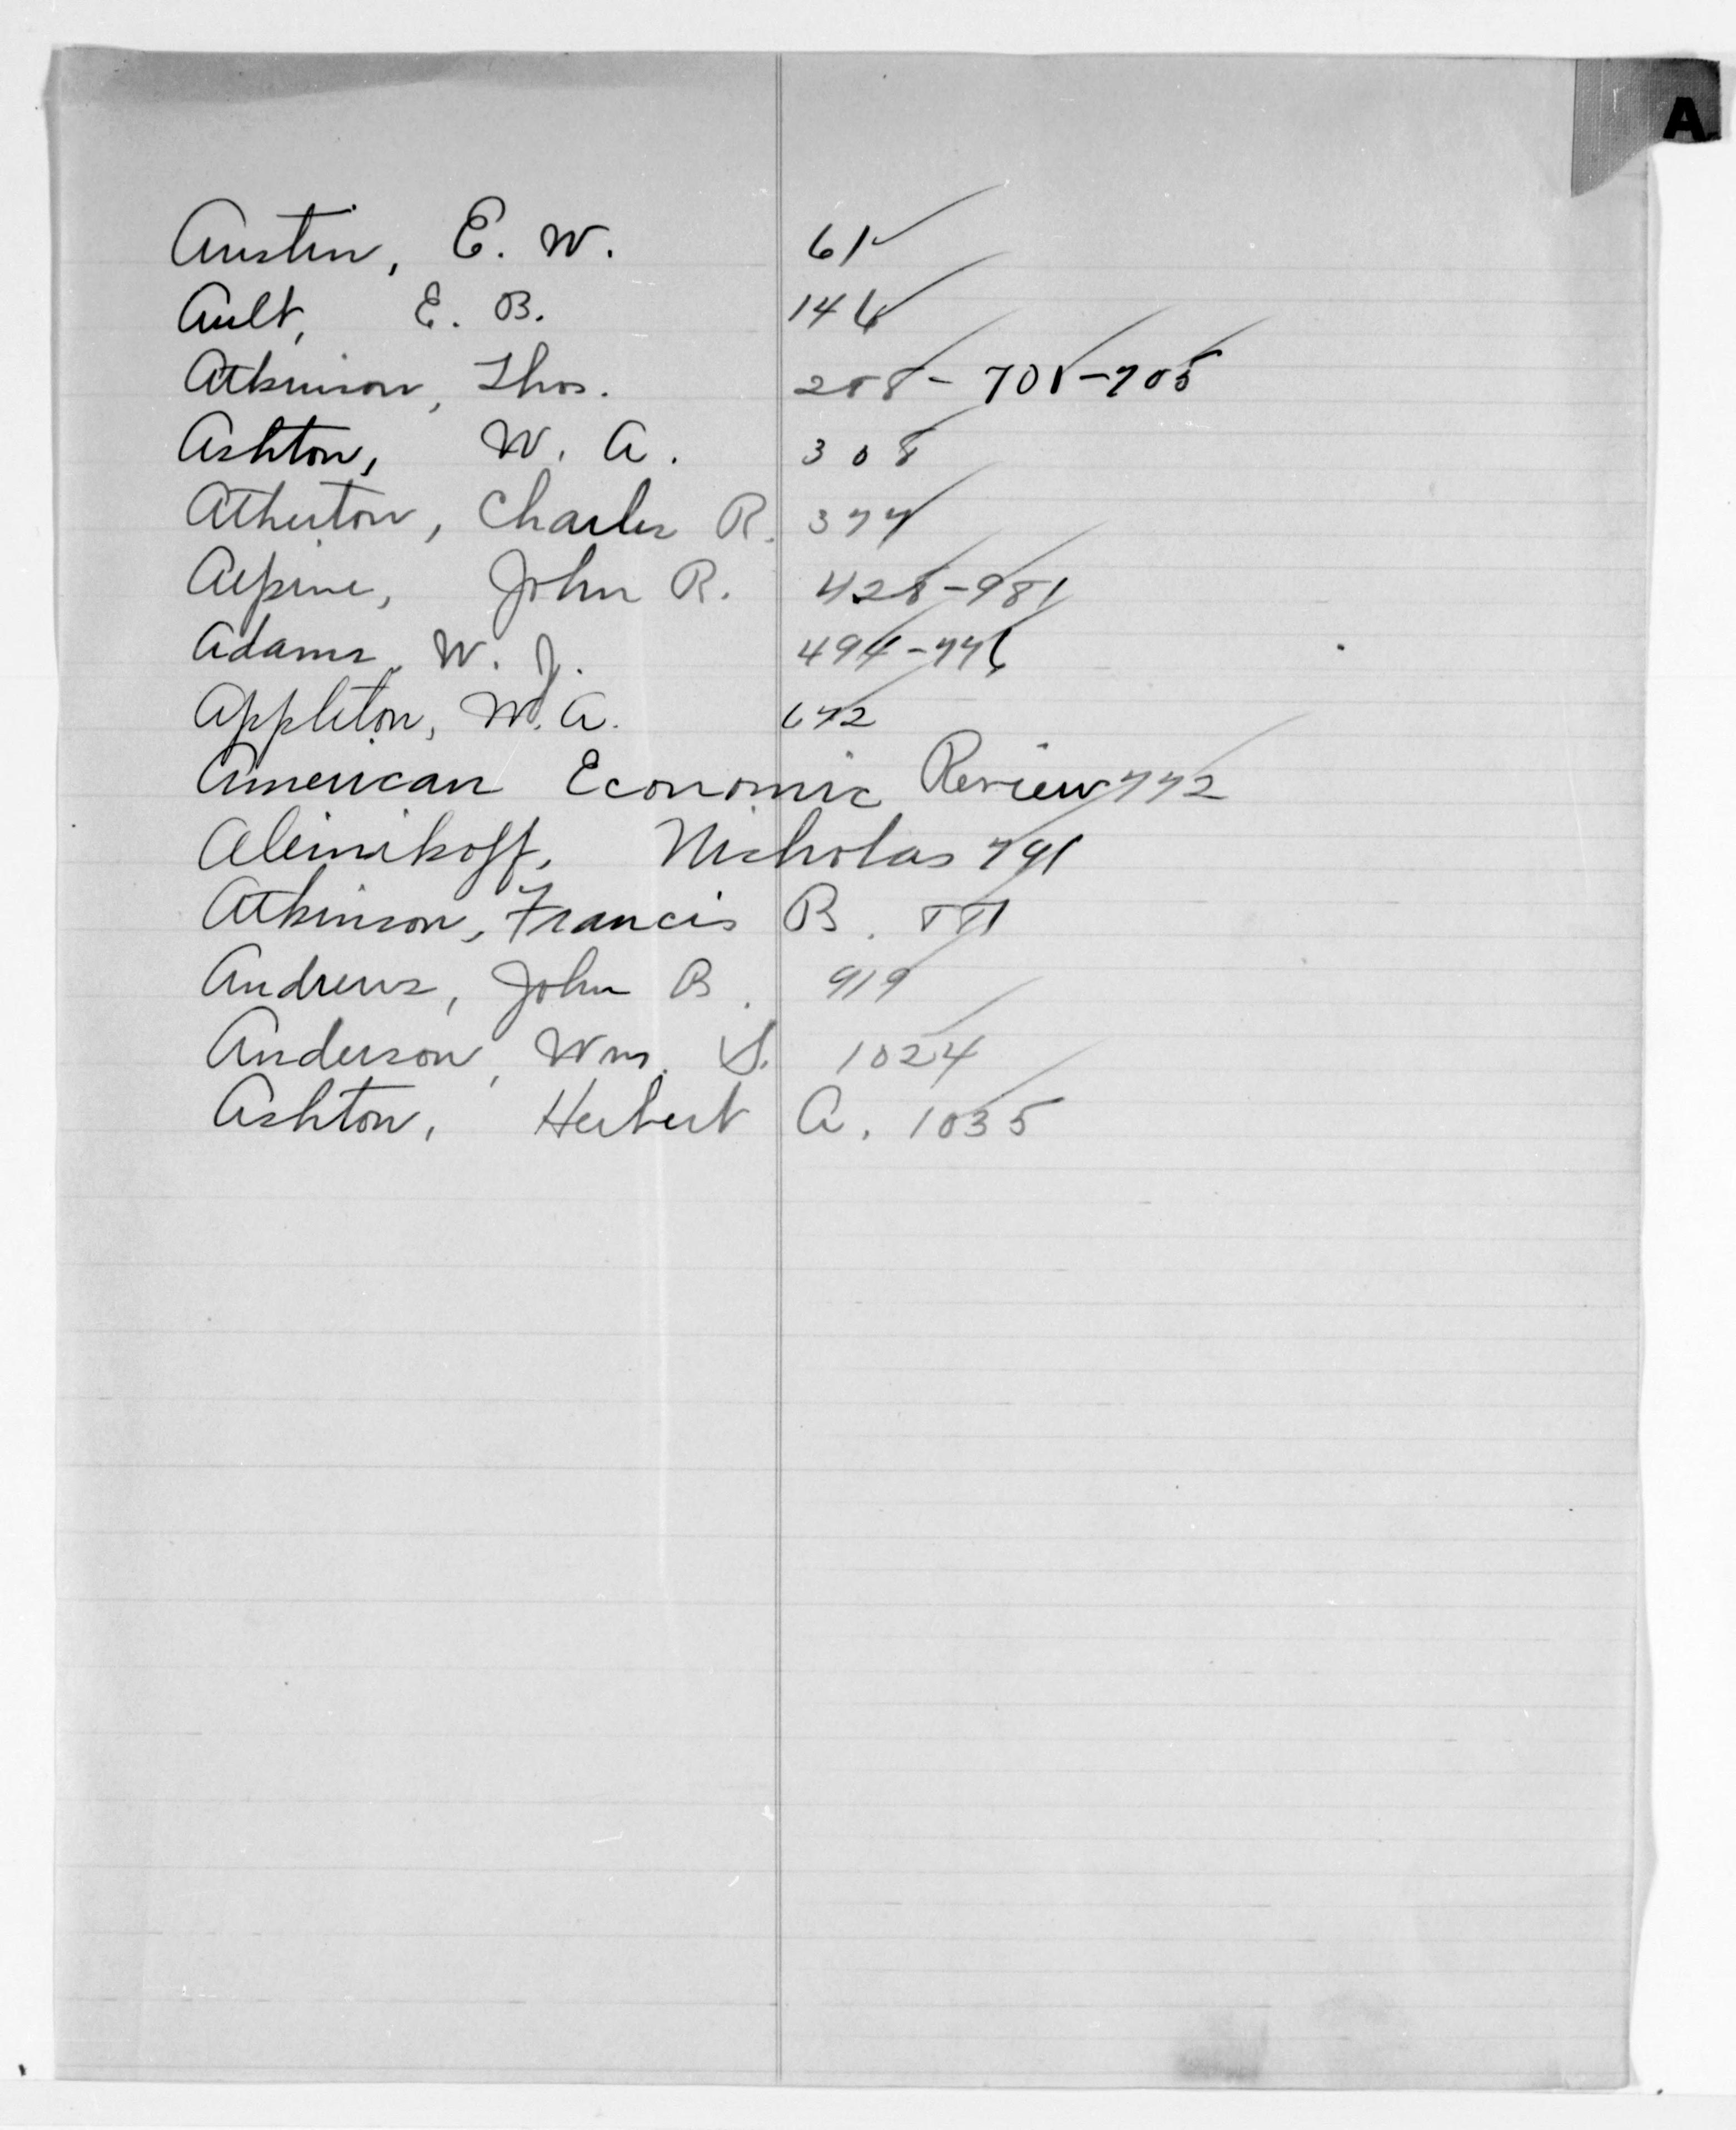 A
Austin, E. W. 61
Ault, E. B. 146
Atkinson, Thos. 288 - 701 - 705
Ashton, W. A. 308
Atherton, Charles R. 377
Alpine, John R. 428 - 981
Adams, W. J. 494 - 776
Appleton, W. A. 672
American Economic Review 772
Aleinikoff, Nicholas 791
Atkinson, Francis B. 881
Andrews, John B. 919
Anderson, Wm. S. 1024
Ashton, Herbert A. 1035